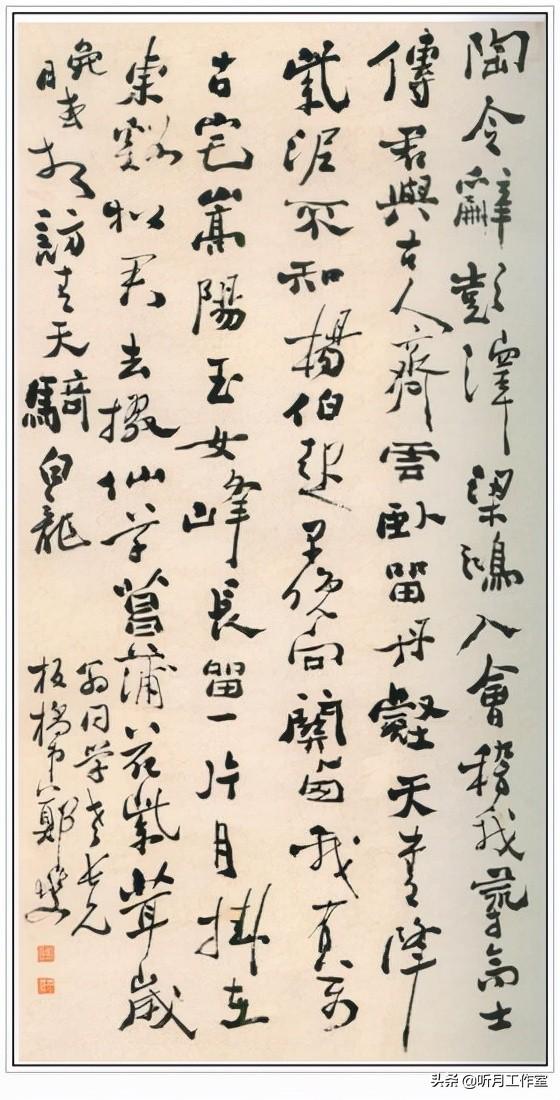 陶令辭彭澤梁鴻入會稽我尋高士
傳君與古人齊雲卧留丹壑天書降
紫泥不知楊伯起早晚向關西我有万
古宅嵩陽玉女峰長留一片月掛在
東谿松君去掇仙草菖蒲花紫茸歲
晚或相訪青天騎白龍
翁同学老長兄
板橋弟鄭燮
头条 @听月工作室